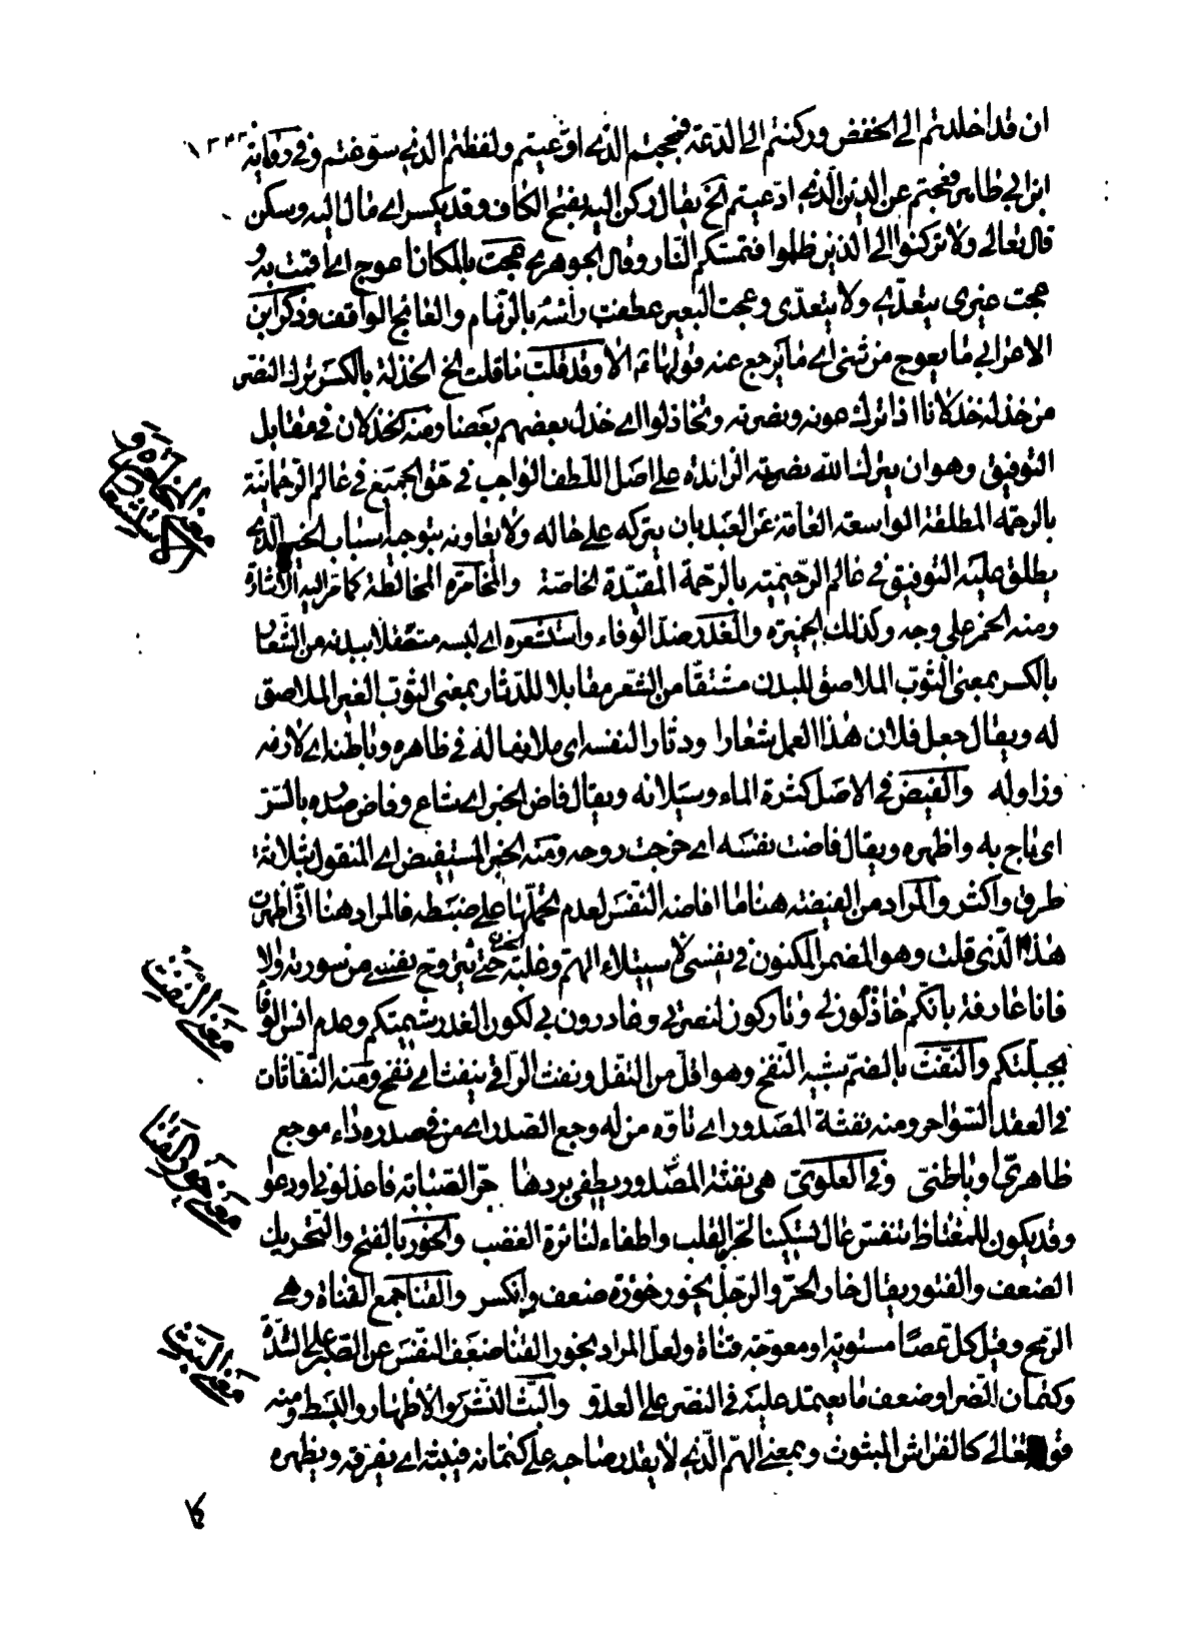 ان قد اخلدتم الى الخفض وركنتم الى الدّعة فمججتم الّذي اوعيتم ولفظتم الذي سوّغتم وفي رواية
ابن ابي طاهر فعجتم عن الدين الّذي ادّعيتم الخ يقال ركن اليه بفتح الكاف وقد يكسر اي مال اليه وسكن
قال تعالى ولا تركنوا الى الذين ظلموا فتمسّكم النّار وقال الجوهري عجت بالمكان اعوج اي اقمت به و
عجت غيري يتعدّى ولا يتعدّى وعجت البعير عطفت رأسه بالزّمام والعائج الواقف وذكر ابن
الاعرابي ما يعوج من شيء اي ما يرجع عنه قولها ثم الا وقد قلت ما قلت الخ الخذلة بالكسر ترك النصر
من خذله خذلانا اذا ترك عونه ونصرته وتخاذلوا اي خذل بعضهم بعضا ومنه الخذلان في مقابل
التوفيق وهو ان يترك الله نصرته الزائدة على اصل اللّطف الواجب في حقّ الجميع في عالم الرّحمانيّة
بالرحمة المطلقة الواسعة العامّة عن العبد بان يتركه على حاله ولا يعاونه بتوجيه اسباب الخير الّذي
يطلق عليه التوفيق في عالم الرّحيميّة بالرّحمة المقيّدة الخاصّة والمخامرة المخالطة كما مرّ اليه الاشارة
ومنه الخمر على وجه وكذلك الخميرة والغدر ضدّ الوفاء واستشعره اي لبسه متّصلا ببدنه من الشّعار
بالكسر بمعنى الثوب الملاصق للبدن مشتقّا من الشّعر مقابلا للدّثار بمعنى الثوب الغير الملاصق
له ويقال جعل فلان هذا العمل شعارا ودثارا لنفسه اي ملابسا له في ظاهره وباطنه اي لازمه
وزاوله والفيض في الاصل كثرة الماء وسيلانه ويقال فاض الخبر اي شاع وفاض صدره بالسّرّ
اي باح به واظهره ويقال فاضت نفسه اي خرجت روحه ومنه الخبر المستفيض اي المنقول بثلاثة
طرق واكثر والمراد من الفيضة هنا ما افاضه النّفس لعدم تحمّلها على ضبطه فالمراد هنا انّي اظهرت
هذا الّذي قلت وهو المضمر المكنون في نفسي لاستيلاء الهمّ وغلبة الحزن حتّى تتروّح نفسي من سورته والا
فانا عارفة بانّكم خاذلون لي وتاركون لنصرتي وغادرون بي لكون الغدر شيمتكم وعدم انس الوفا
بجبلّتكم والنّفث بالضمّ شبيه النّفخ وهو اقلّ من التفل ونفث الرّاقي ينفث اي نفخ ومنه النّفّاثات
في العقد السّواحر ومنه نفثة المصدور اي تاوّه من له وجع الصّدر اي من في صدره داء موجع
ظاهريّ او باطنيّ وفي العلويّ هي نفثة المصدور يطفي بردها حرّ الصّبابة فاعذلوني او دعوا
وقد يكون للمغتاظ تنفّس عال تسكينا لحرّ القلب واطفاء لنائرة الغضب والخور بالفتح والتّحريك
الضعف والفتور يقال خار الحرّ والرّجل يخور خؤرة ضعف وانكسر والقنا جمع القناة وهي
الرّمح وقيل كلّ عصا مستوية او معوجّة قناة ولعلّ المراد بخور القنا ضعف النّفس عن الصّبر على الشّدّة
وكتمان الضّر او ضعف ما يعتمد عليه في النصر على العدوّ والبثّ النّشر والاظهار والبسط ومنه
تعالى كالفراش المبثوث وبمعنى الهمّ الّذي لا يقدر صاحبه على كتمانه فيبثّه اي يفرّقه ويظهره
معنى المخامرة و
الاستشعار
معنى النّفث
معنى خور القنا
معنى البثّ
كا